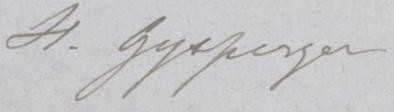 H. Gysperger